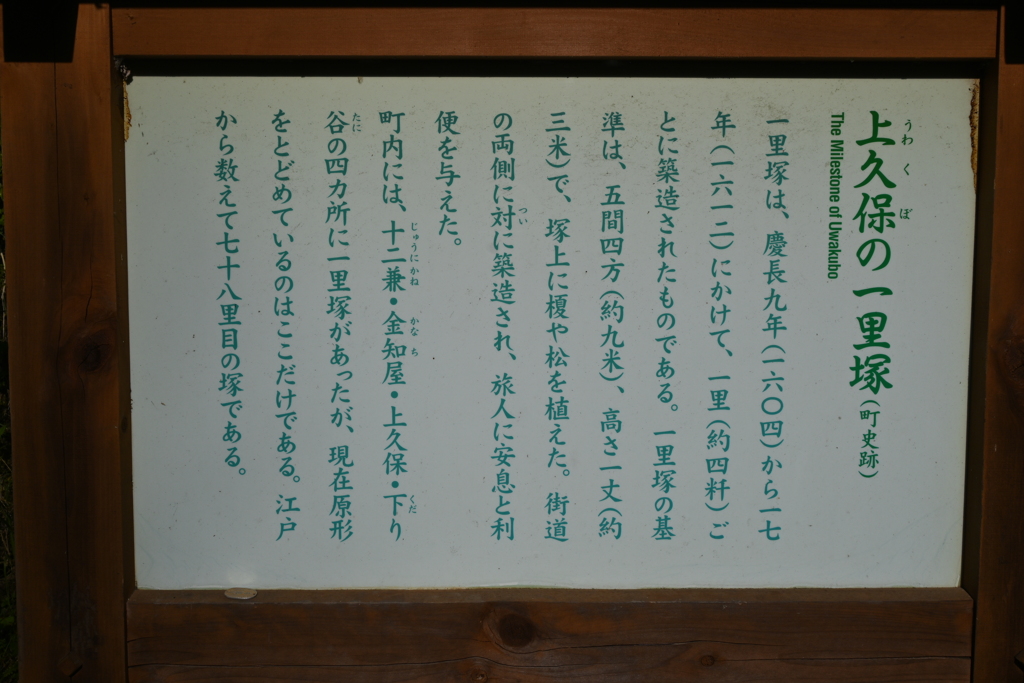 上久保の一里塚(町史跡)
うわくぼ
The Milestone of Uwakubo
一里塚は、慶長九年(一六〇四)から一七
年(一六一二)にかけて、一里(約四粁)ご
とに築造されたものである。一里塚の基
準は、五間四方(約九米)、高さ一丈(約
三米)で、塚上に榎や松を植えた。街道
の両側に対に築造され、旅人に安息と利
つい
便を与えた。
町内には、十二兼・金知屋・上久保・下り
じゅうにかね かなち くだ
谷の四カ所に一里塚があったが、現在原形
たに
をとどめているのはここだけである。江戸
から数えて七十八里目の塚である。